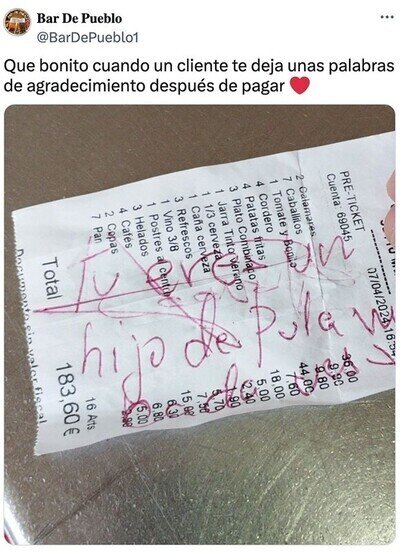 Bar De Pueblo
@BarDePueblo1
Que bonito cuando un cliente te deja unas palabras
de agradecimiento después de pagar ❤️
PRE-TICKET
Cuenta: 69045
07/04/2024
2 Calamares
7 Caballitos
1 Tomate y
4 Cordero
4 Patatas fritas
3 Plato Combinado
1 Jarra Tinto Verano
1 1/3 cerveza
1 Caña cerveza
3 Refrescos
1 Vino 3/8
1 Postres al centro
3 Helados
4 Cafés
2 Copas
7 Pan
9.90
9.80
44.00
7.60
18.00
5.00
16 Arts
Total 183,60€
Documento sin valor fiscal
Tu eres un
hijo de puta